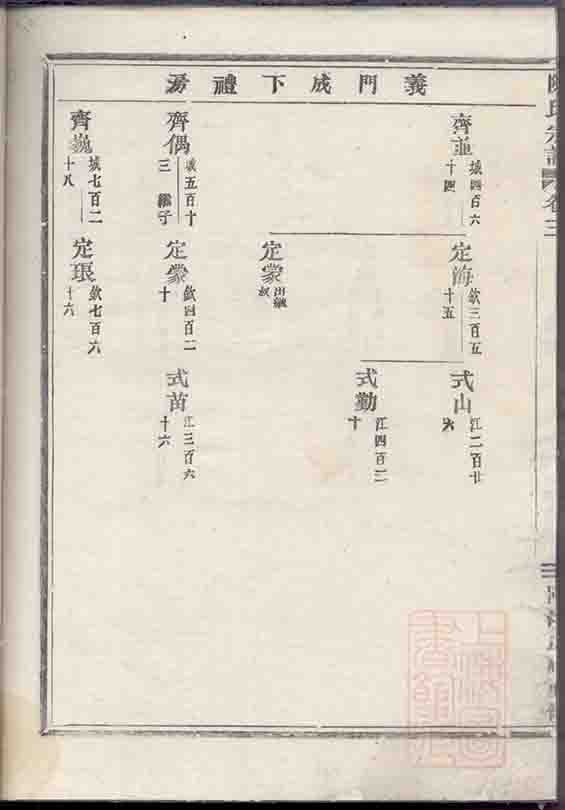 義門成下禮房
齊並
城四百六
十四
定海
欽三百五
十五
式山
江二百廿
六
式勤
江四百二
十
定蒙
出繼
叔
齊偶
城五百十
三 繼子
定蒙
欽四百二
十
式苗
江三百六
十六
齊巍
城七百二
十八
定琅
欽七百六
十六
陳氏宗譜
卷三
上海圖
書館藏